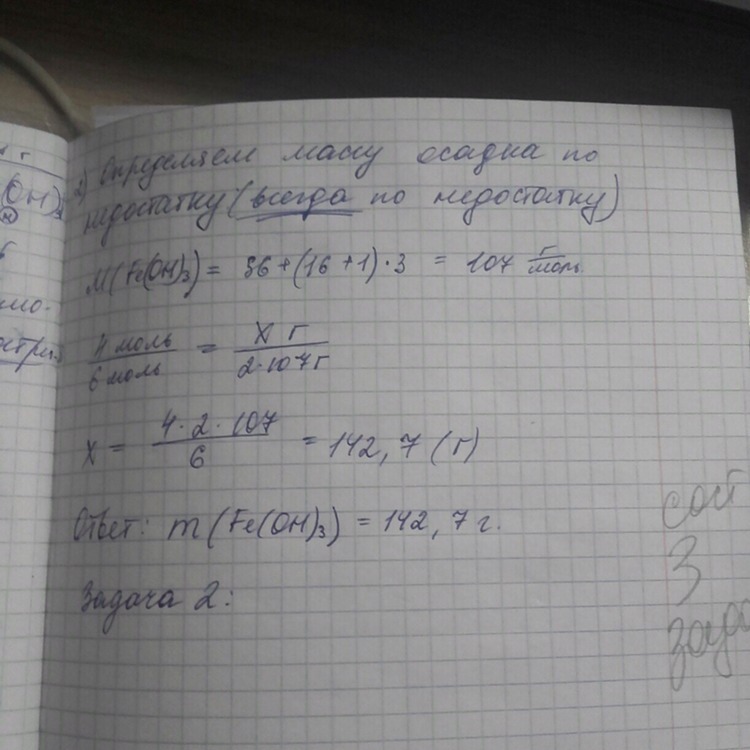 г
(OH)
2) Определяем массу осадка по
недостатку (всегда по недостатку)
M(Fe(OH)₃) = 56+(16+1)·3 = 107 г/моль
4 моль/6 моль = X г/2·107г
X = 4·2·107/6 = 142,7 (г)
Ответ: m(Fe(OH)₃) = 142,7 г.
Задача 2:
сост
3